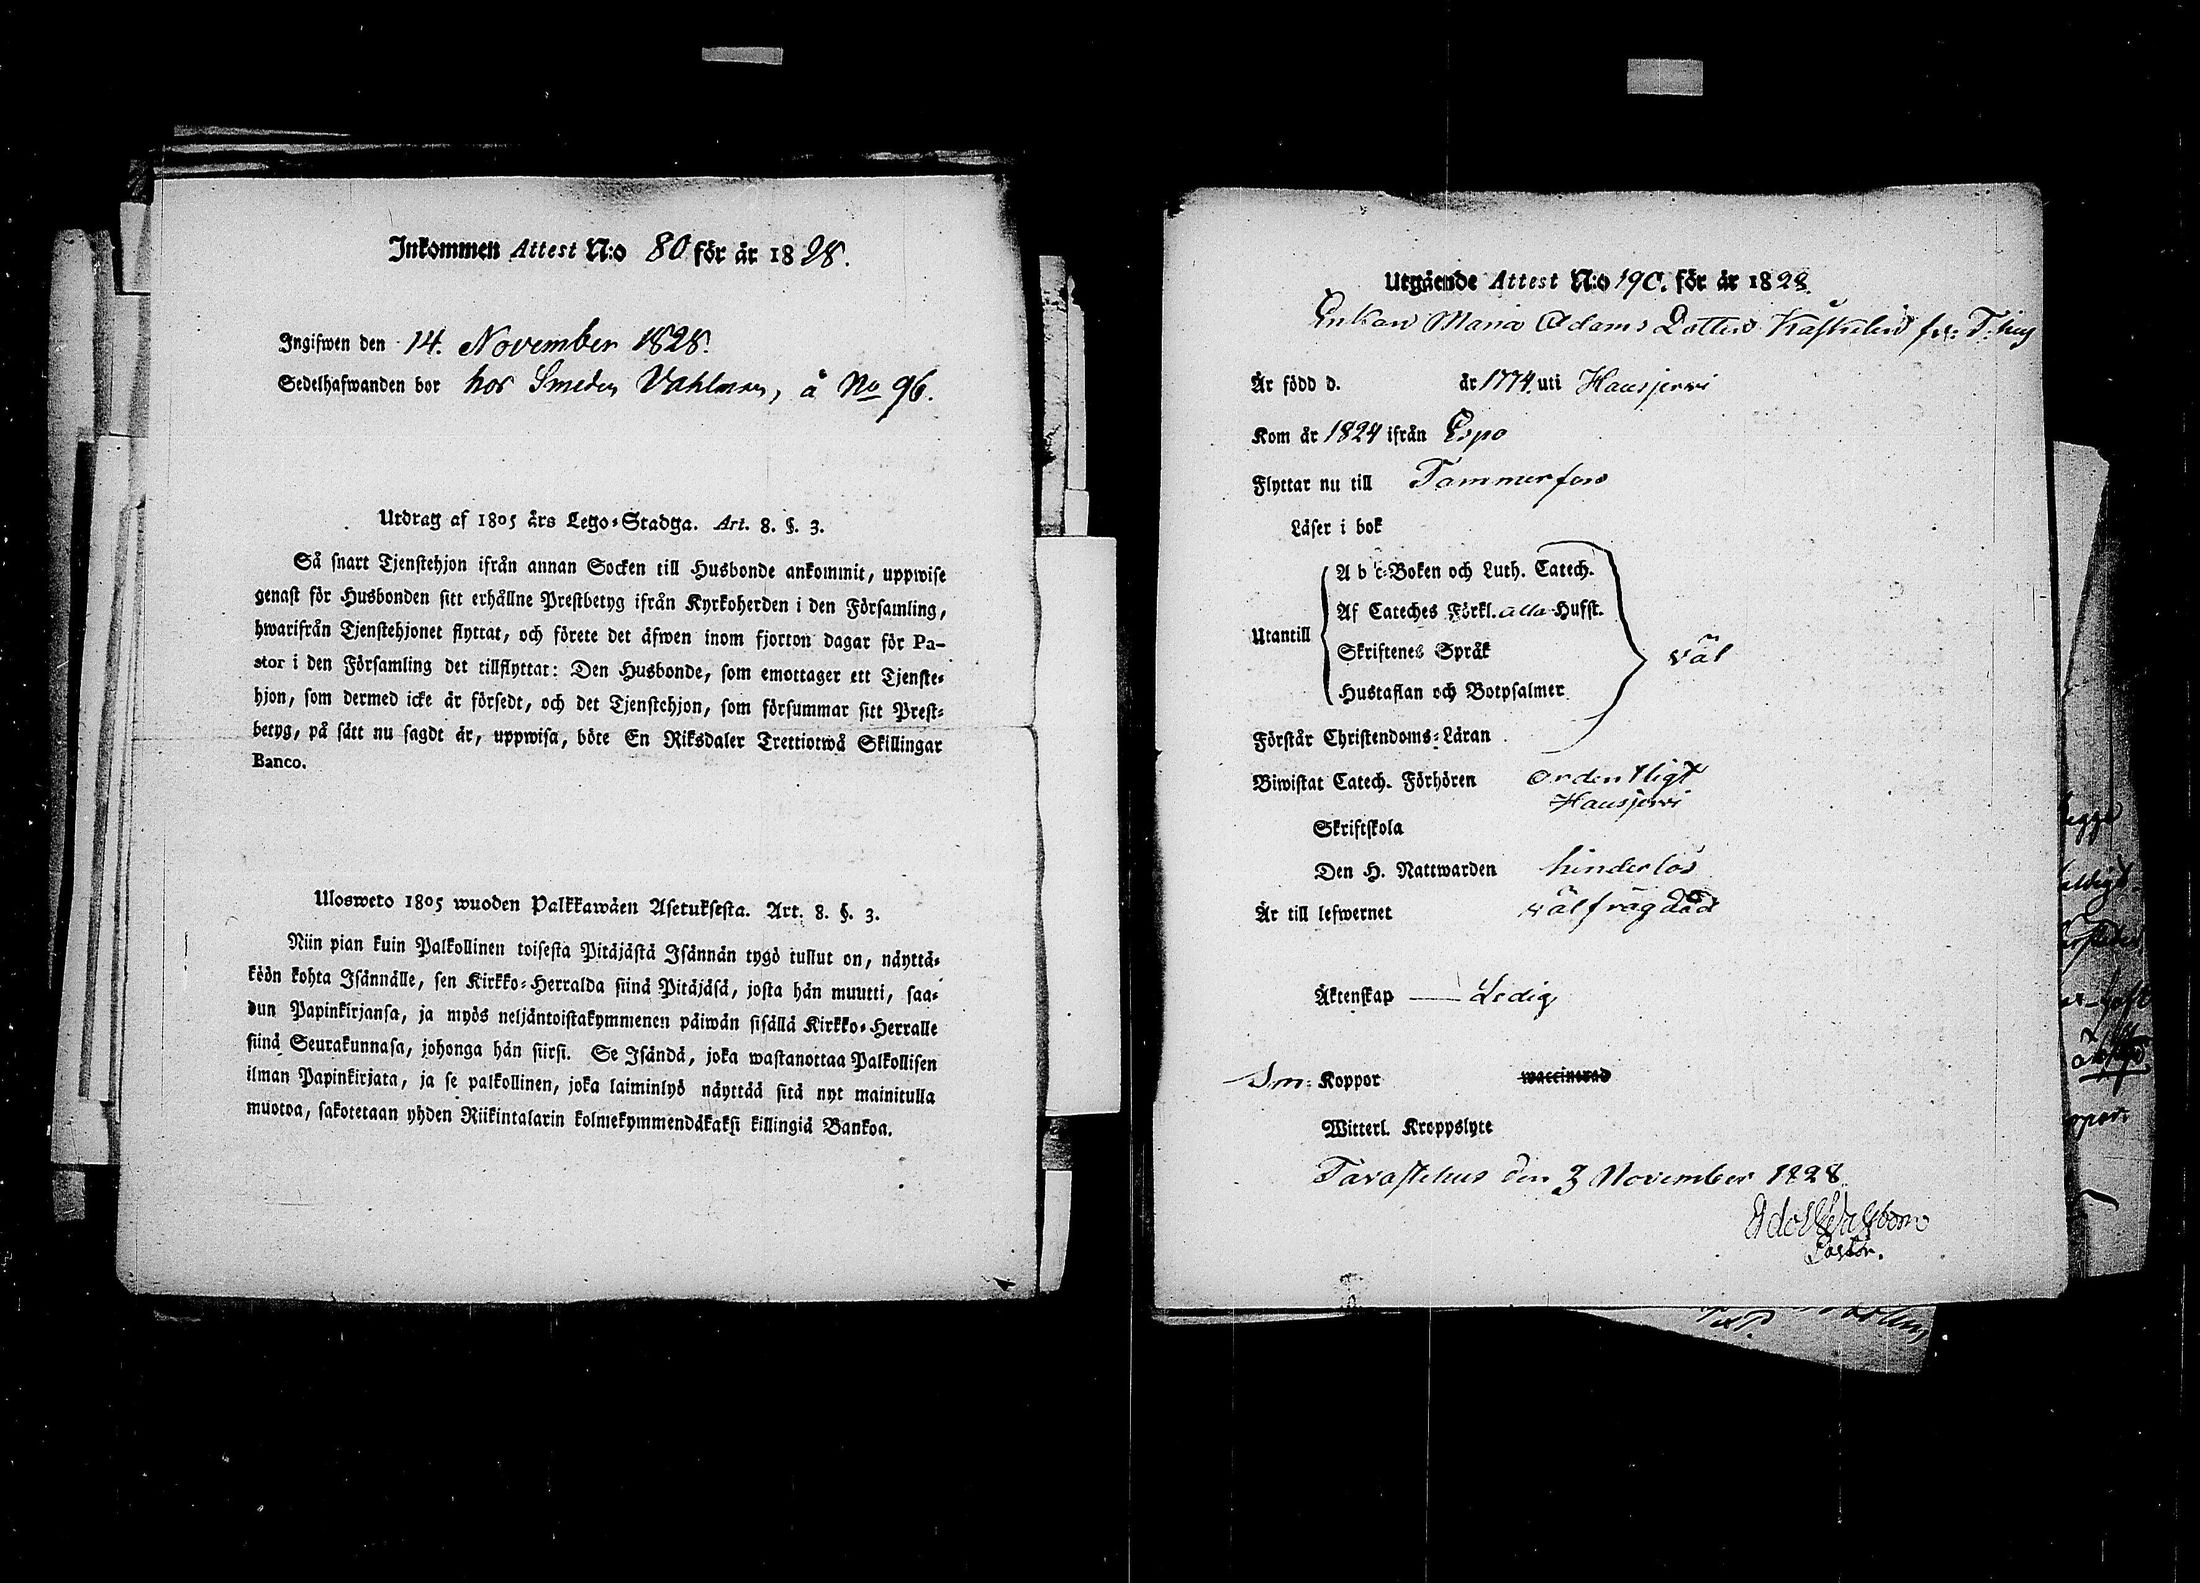 Inkommen Attest N:o 80 för år 1828.
Ingifwen den 14. November 1828.
Sedelhafwanden bor hos Smeden Vahlman, å No 96.
Utdrag af 1805 års Lego-Stadga. Art. 8. §. 3.
Så snart Tjenstehjon ifrån annan Socken till Husbonde ankommit, uppwise
genast för Husbonden sitt erhållne Prestbetyg ifrån Kyrkoherden i den Församling,
hwarifrån Tjenstehjonet flyttat, och förete det äfwen inom fjorton dagar för Pa-
stor i den Församling det tillflyttat: Den Husbonde, som emottager ett Tjenste-
hjon, som dermed icke är försedt, och det Tjenstehjon, som försummar sitt Prest-
betyg, på sätt nu sagdt är, uppwisa, böte En Riksdaler Trettiotwå Skillingar
Banco.
Ulosweto 1805 wuoden Palkkawäen Asetuksesta. Art. 8. §. 3.
Niin pian kuin Palkollinen toisesta Pitäjästä Isännän tygö tullut on, näyttä-
köön kohta Isännälle, sen Kirkko-Herralda siinä Pitäjäsä, josta hän muutti, saa-
dun Papinkirjansa, ja myös neljäntoistakymmenen päiwän sisällä Kirkko-Herralle
siinä Seurakunnasa, johonga hän siirsi. Se Isändä, joka wastanottaa Palkollisen
ilman Papinkirjata, ja se palkollinen, joka laiminlyö näyttää sitä nyt mainitulla
muotoa, sakotetaan yhden Riikintalarin kolmekymmendäkaksi killingiä Bankoa.
Utgående Attest N:o 190. för år 1828.
Enkan Maria Adams Dotter fr: T:hus
Är född d. år 1774 uti Hausjerwi
Kom år 1824 ifrån Espo
Flyttar nu till Tammerfors
Läser i bok
A b c-Boken och Luth. Catech.
Af Cateches Förkl. alla Hufst.
Utantill
Skriftenes Språk
väl
Hustaflan och Botpsalmer
Förstår Christendoms-Läran
Biwistat Catech. Förhören ordentligt
Hausjerwi
Skriftskola
Den H. Nattwarden hinderlös
Är till lefwernet wälfrägdad
Äktenskap — Ledig
Sm: Koppor waccinerad
Witterl. Kroppslyte
Tavastehus den 3 November 1828.
Pastor.